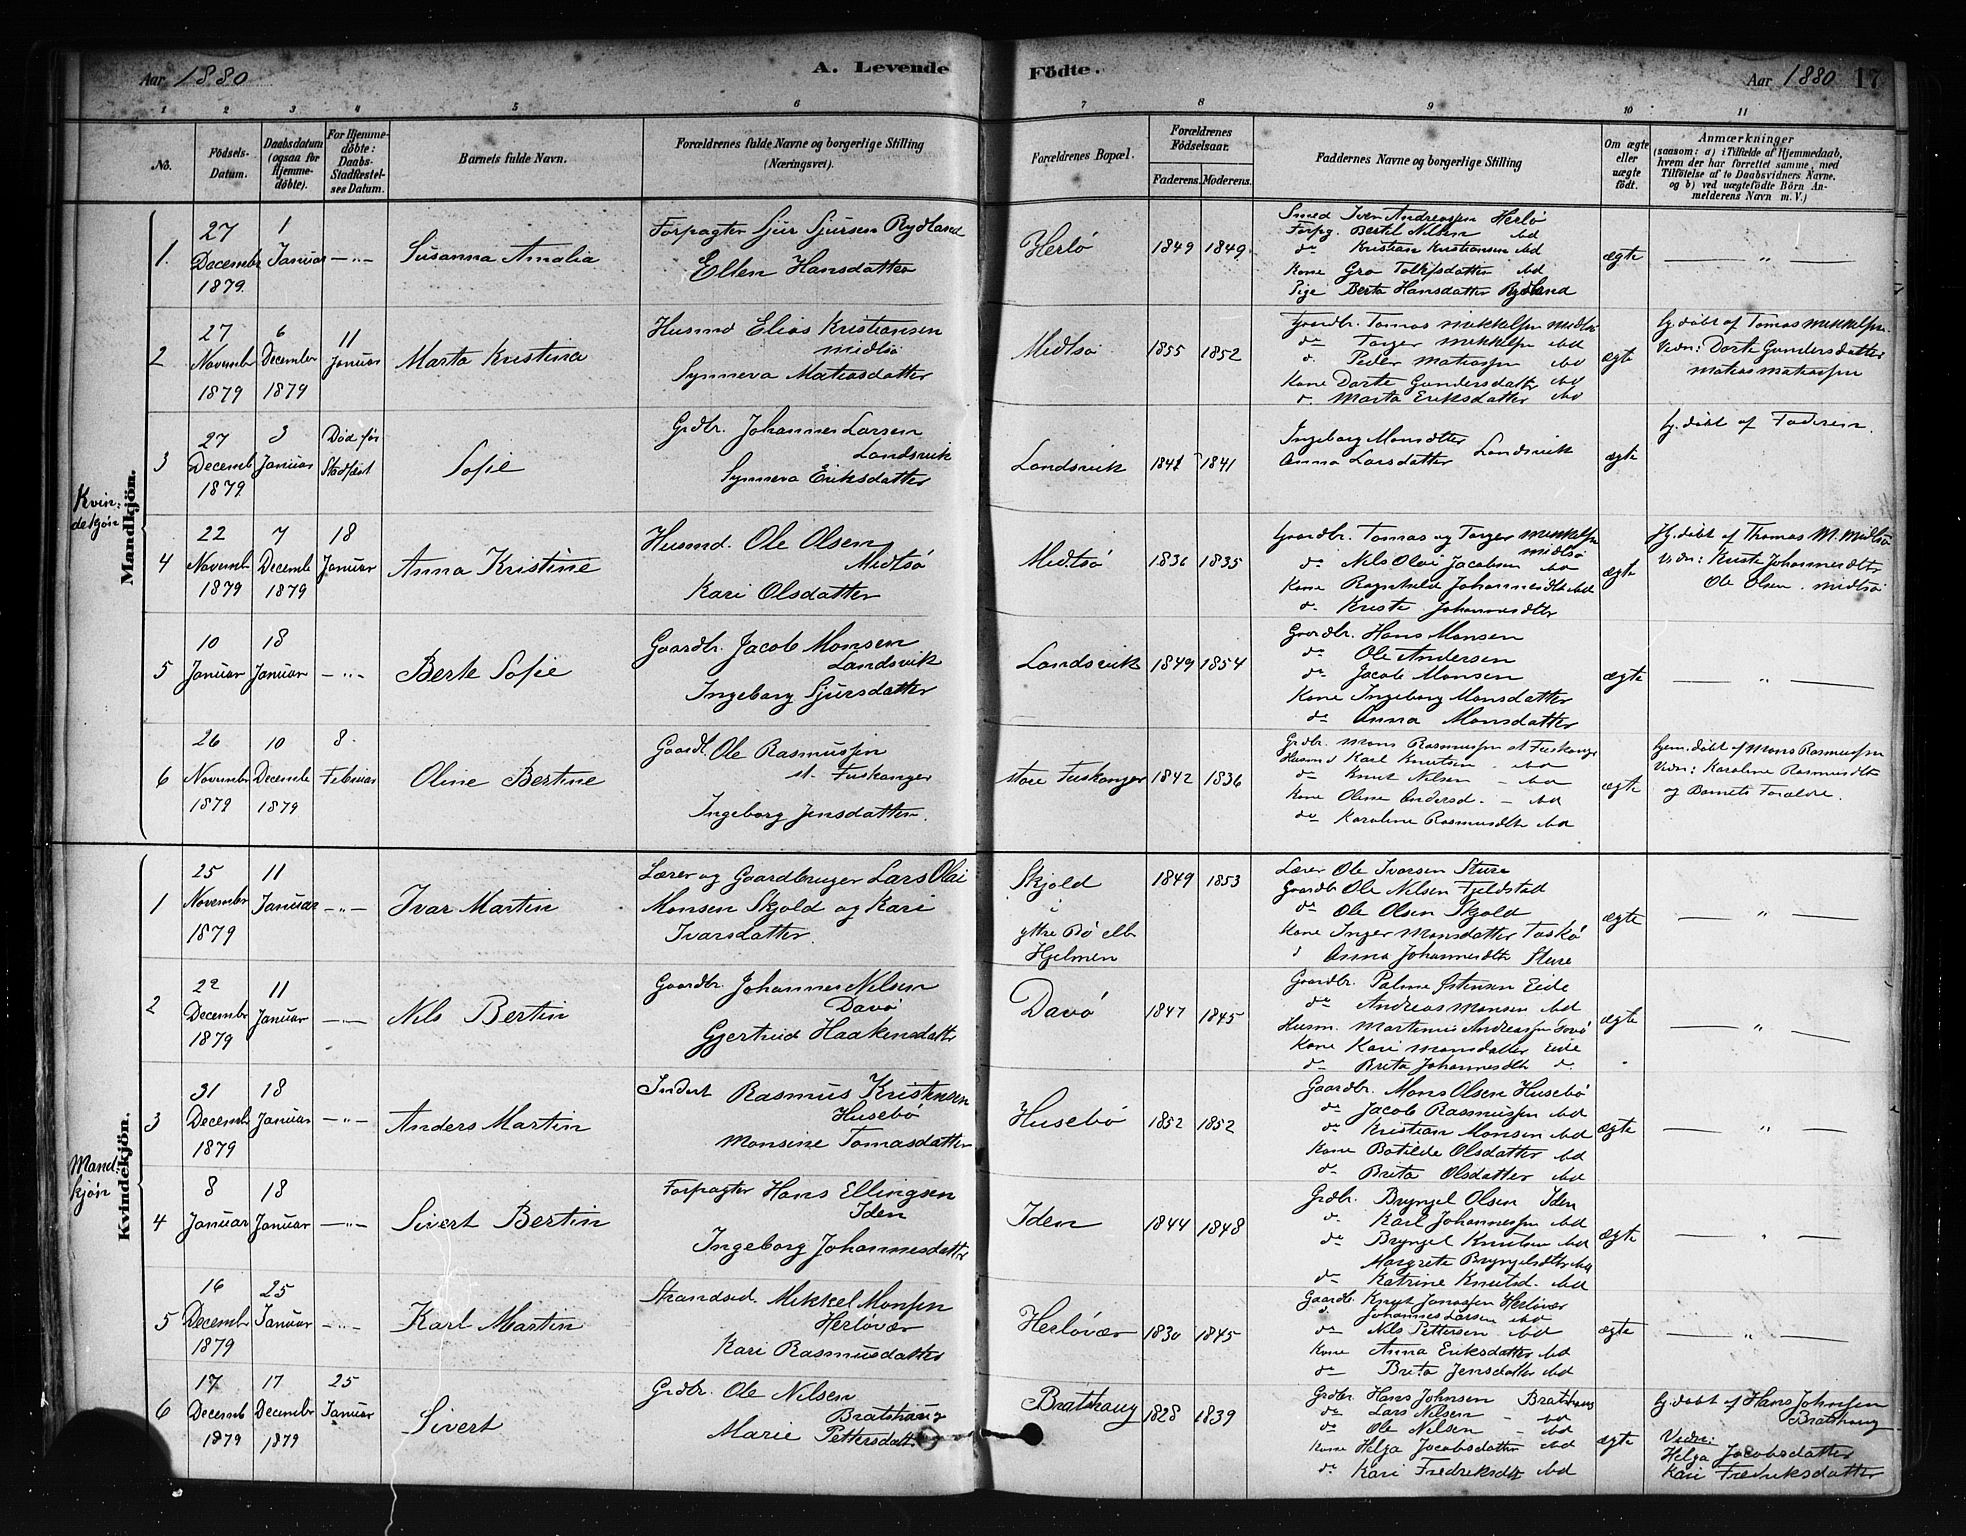 Aar 1880
A. Levende Födte.
Aar 1880 17
1 2 3 4 5 6 7 8 9 10 11
No.
Födsels-Datum.
Daabsdatum (ogsaa for Hjemme-döbte).
For Hjemme-döbte: Daabs-Stadfæstel-ses Datum.
Barnets fulde Navn.
Forældrenes fulde Navne og borgerlige Stilling (Næringsvei).
Forældrenes Bopæl.
Forældrenes Födselsaar.
Faderens. Moderens.
Faddernes Navne og borgerlige Stilling
Om ægte eller uægte födt.
Anmærkninger
(saasom: a) i Tilfælde af Hjemmedaab,
hvem der har forrettet samme, med
Tilföielse af to Daabsvidners Navne,
og b) ved uægtefödte Börn An-
melderens Navn m. V.)
Kvin:
dekjön
Mandkjön.
1. 27 Decembr 1879 1 Januar — " — Susanna Amalia
Forpagter Sjur Sjursen Rydland
Ellen Hansdatter
Herlö 1849 1849.
Smed Iver Andreassen Herlö
Forpg. Bertel Nilsen ibd
do Kristian Kristiansen ibd
Kone Gro ibd
Pige Berta Hansdatter Rydland
ægte — " —
2 27 Novembr 1879 6 Decembr 1879 11 Januar Marta Kristina
Husmd Elias Kristiansen
Midtsö
Synneva Matiasdatter
Midtsö 1855 1852
Gaardbr. Tomas Mikkelsen Midtsö
do Torger Mikkelsen ibd
d. Peder Matiassen ibd
Kone Dorte Gundersdattr ibd
d. Marta Eriksdatter ibd
ægte
hj. döbt af Tomas Mikkelsen.
Vidn: Dorte Gundersdatter
Matias Matiassen
3 27 Decemb 1879 3 Januar Död för Stadfæst Sofie
Grdbr. Johannes Larsen
Landsvik
Synneva Eriksdatter
Landsvik 1841 1841
Ingeborg Monsdtter
Anna Larsdatter Landsvik
ægte
hj. döbt af Faderen.
4 22 Novemb. 1879 7 Decemb 1879 18 Januar Anna Kristine
Husmd. Ole Olsen
Midtsö
Kari Olsdatter
Midtsö 1836 1835
Gaardbr. Tomas og Torger Mikkelsen
Midtsö
do Nils Olai Jacobsen ibd
Kone Ragnhilde Johannesdtr ibd
d. Kriste Johannesdtr
ægte
Hj. döbt af Thomas M. Midtsö
Vidn: Kriste Johannesdtr
Ole Olsen. Midtsö
5 10 Januar 18 Januar — " — Berte Sofie
Gaardbr. Jacob Monsen
Landsvik
Ingeborg Sjursdatter
Landsvik 1849 1854
Gaardbr. Hans Monsen
do Ole Andersen
do Jacob Monsen
Kone Ingeborg Monsdatter
do Anna Monsdatter
ægte — " —
6 26 Novembr 1879 10 Decemb 1879 8 Februar Oline Bertine
Gaardb Ole Rasmussen
st. Fuskanger
Ingeborg Jensdatter.
store Fuskanger 1842 1836
Grdbr. Mons Rasmussen st Fuskanger
Husmd Karl Knutsen - ibd
do Knut Nilsen - ibd
Kone Oline Andersd. - ibd
do Karoline Rasmusdtr ibd
ægte
hjem. döbt af Mons Rasmussen
Vidn: Karoline Rasmusdtr
og Barnets Forældre.
Mand:
kjön
Kvindekjön.
1 25 Novembr 1879 11 Januar — " — Ivar Martin
Lærer og Gaardbruger Lars Olai
Monsen Skjold og Kari
Ivarsdatter.
Skjold
i
yttre Bö elb
Hjelmen
1849 1853
Lærer Ole Ivarsen Sture
Gaardb Ole Nilsen Fjeldstad
do Ole Olsen Skjold
Kone Inger Monsdatter Toskö
d Anna Johannesdtr Sture
ægte — " —
2 22 Decembr 1879 11 Januar — " — Nils Bertin
Gaardbr. Johannes Nilsen
Davö
Gjertrud Haakensdattr
Davö 1847 1845
Gaardbr. Palme Östensen Eide
do Andreas Monsen ibd
Husm. Martinus Andreassen
Kone Kari Monsdatter Eide
do Brita Johannesdtr d.
ægte — " —
3 31 Decemb 1879 18 Januar — " — Anders Martin
Inderst Rasmus Kristensen
Husebö
Monsine Tomasdatter
Husebö 1852 1852
Gaardbr. Mons Olsen Husebö
do Jacob Rasmussen ibd
do Kristian Monsen ibd
Kone Botilde Olsdatter ibd
do Brita Olsdatter ibd
ægte — " —
4 8 Januar 18 Januar — " — Sivert Bertin
Forpagter Hans Ellingsen
Iden
Ingeborg Johannesdatter
Iden 1844 1848
Grdbr. Bryngel Olsen Iden
d. Karl Johannessen ibd
do Bryngel Knutsen ibd
Margrete Bryngelsdtr ibd
do Katrine Knutsd. ibd
ægte — " —
5 16 Decembr 1879 25 Januar — " — Karl Martin
Strandsid. Mikkel Monsen
Herlövær
Kari Rasmusdatter
Herlövær 1830 1845
Gaardb. Knut Janassen Herlövær
d. Johannes Larsen ibd
do Nils Pettersen ibd
Kone Anna Eriksdatter ibd
do Brita Jensdatter ibd
ægte — " —
6 17 Decemb 1879 17 Decembr 1879 25 Januar Sivert
Grdbr. Ole Nilsen
Bratshaug
Marie Pettersdatt
Bratshaug 1828 1839
Grdbr Hans Johnsen Bratshaug
do Lars Nilsen - ibd
do Ole Nilsen - ibd
Kone Helga Jacobsdatter ibd
do Kari Fredriksdtr ibd
ægte
hj. döbt af Hans Johnsen
Bratshaug
Vidn:
Helga Jacobsdatter
Kari Fredriksdatter